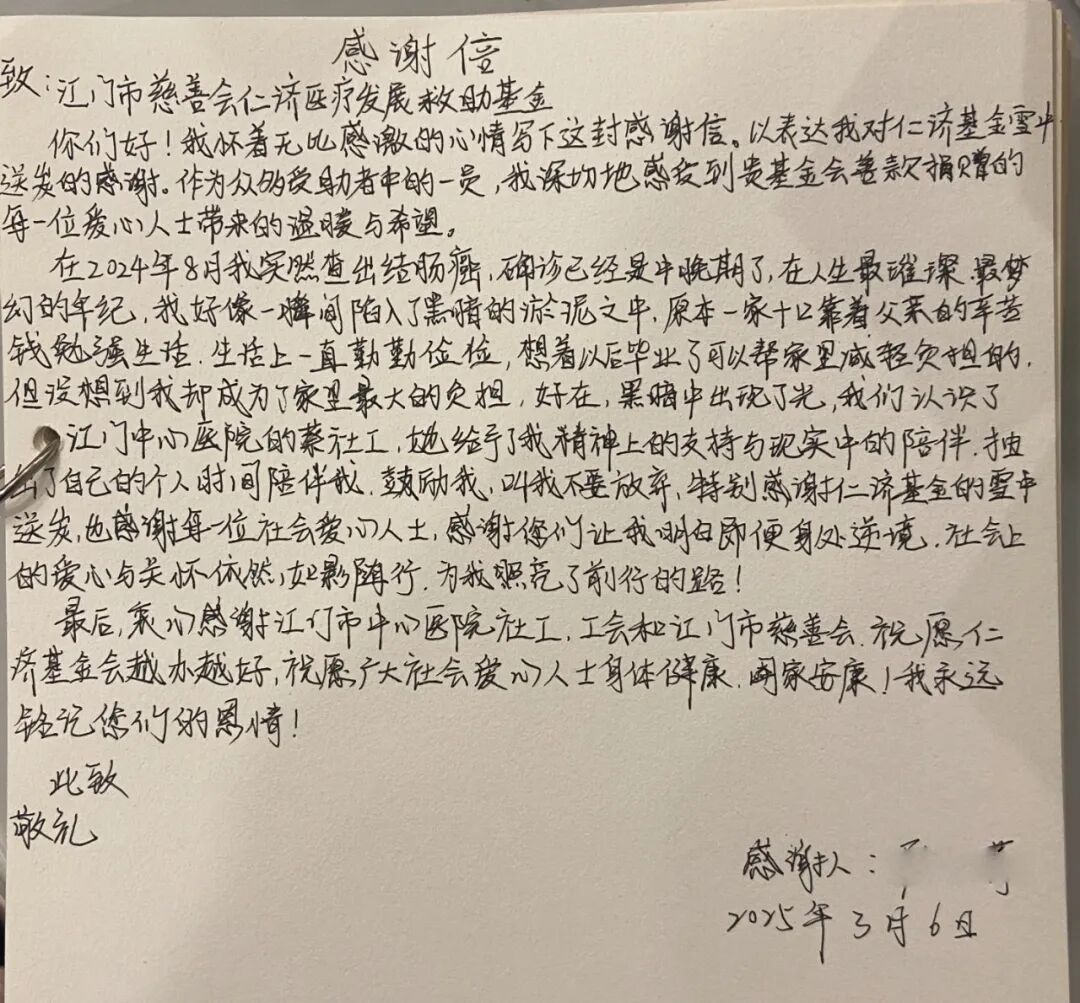 感谢信
致:江门市慈善会仁济医疗发展救助基金
你们好!我怀着无比感激的心情写下这封感谢信。以表达我对仁济基金雪中
送炭的感谢。作为众多受助者中的一员,我深切地感受到贵基金会善款捐赠的
每一位爱心人士带来的温暖与希望。
在2024年8月我突然查出结肠癌,确诊已经是中晚期了,在人生最璀璨.最梦
幻的年纪,我好像一瞬间陷入了黑暗的淤泥之中.原本一家十口靠着父亲的辛苦
钱勉强生活.生活上一直勤勤俭俭,想着以后毕业了可以帮家里减轻负担的,
但没想到我却成为了家里最大的负担,好在,黑暗中出现了光,我们认识了
江门中心医院的蔡社工,她给予了我精神上的支持与现实中的陪伴.抽
出了自己的个人时间陪伴我.鼓励我,叫我不要放弃,特别感谢仁济基金的雪中
送炭,也感谢每一位社会爱心人士,感谢您们让我明白即便身处逆境.社会上
的爱心与关怀依然,如影随行.为我照亮了前行的路!
最后,衷心感谢江门市中心医院社工,工会和江门市慈善会.祝愿仁
济基金会越办越好,祝愿广大社会爱心人士身体健康.阖家安康!我永远
铭记您们的恩情!
此致
敬礼
感谢人:
2025年3月6日